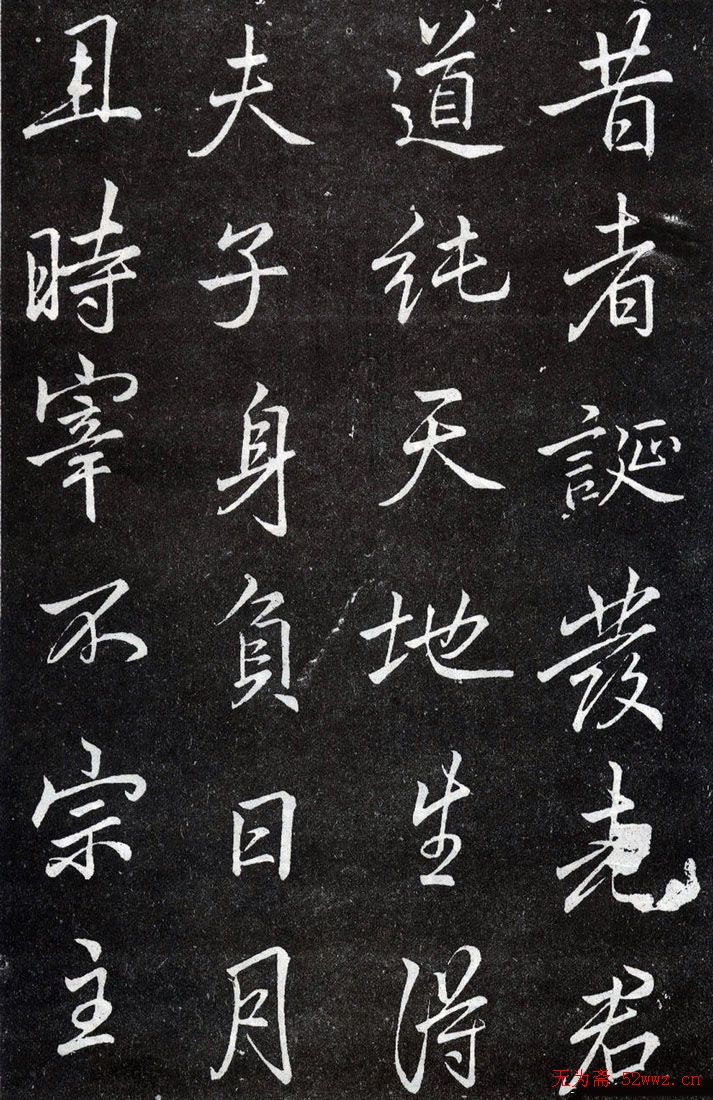 昔者誕發老君
道純天地生得
夫子身負日月
且時宰不宗主
无为斋.52wwz.cn